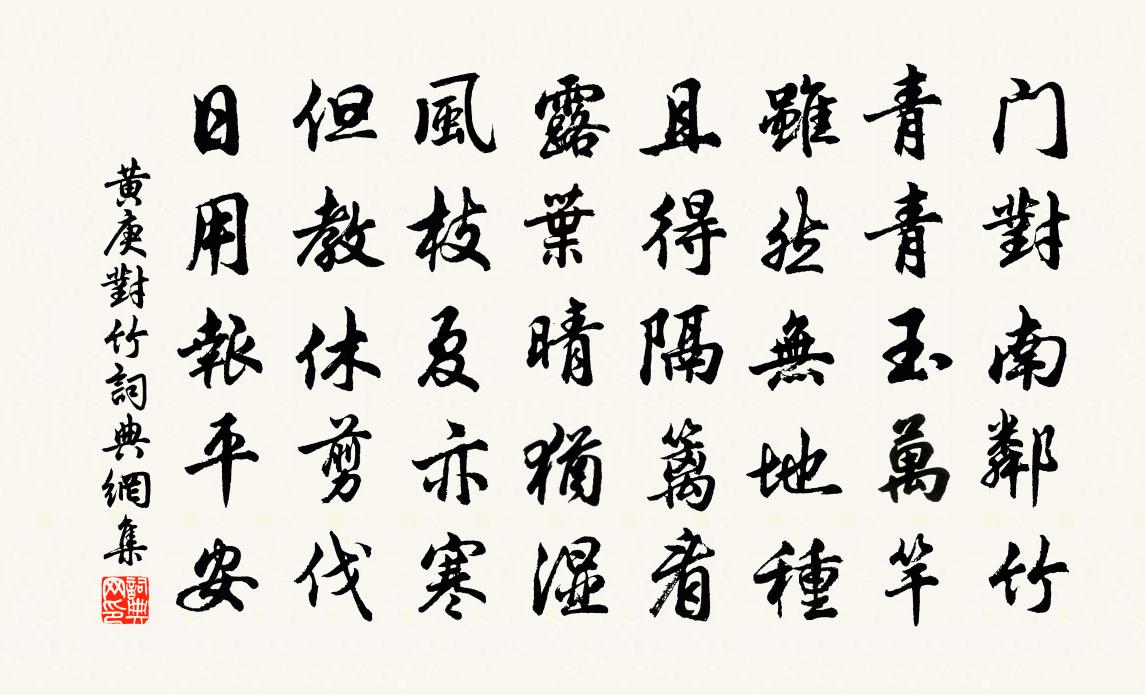 门對南鄰竹
青青玉萬竿
雖然無地種
且得隔籬看
露葉晴猶濕
風枝夏亦寒
但教休剪伐
日用報平安
黃庚對竹詞典網集
詞典网印